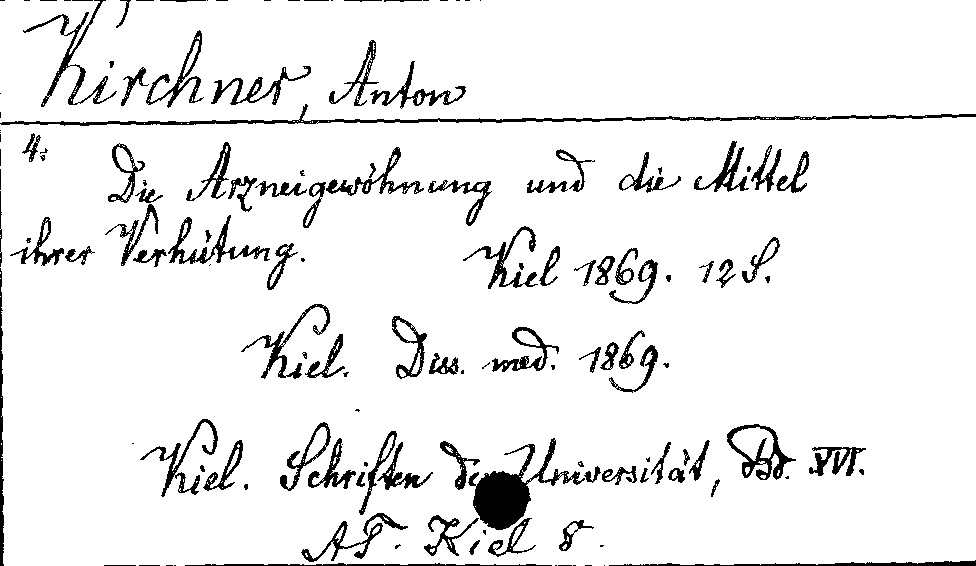 Kirchner, Anton
4:
Die Arzneigewöhnung und die Mittel
ihrer Verhütung.
Kiel 1869. 12 S.
Kiel. Diss. med. 1869.
Kiel. Schriften der Universität, Bd. XVI.
AT. Kiel 8.